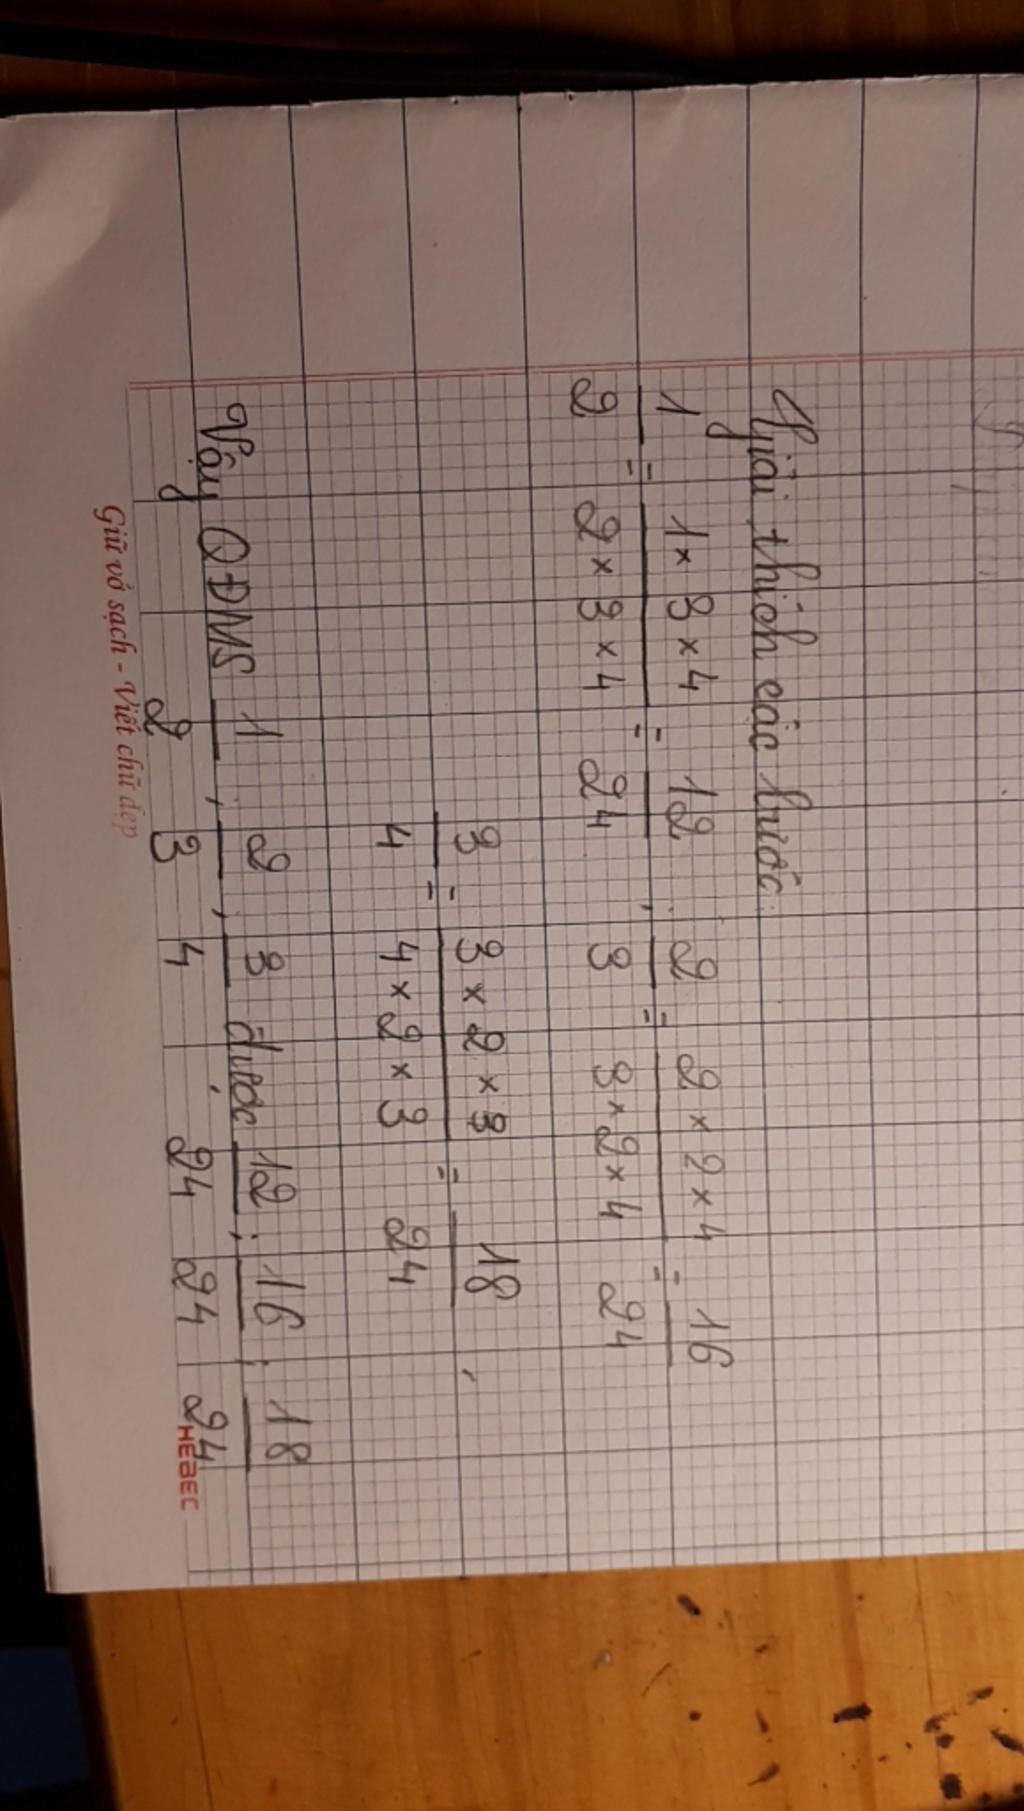 Giải thích các bước:
1/2 = 1×3×4/2×3×4 = 12/24 , 2/3 = 2×2×4/3×2×4 = 16/24
3/4 = 3×2×3/4×2×3 = 18/24 ,
Vậy QĐMS 1/2 , 2/3 , 3/4 được 12/24 ; 16/24 ; 18/24
Giữ vở sạch - Viết chữ đẹp